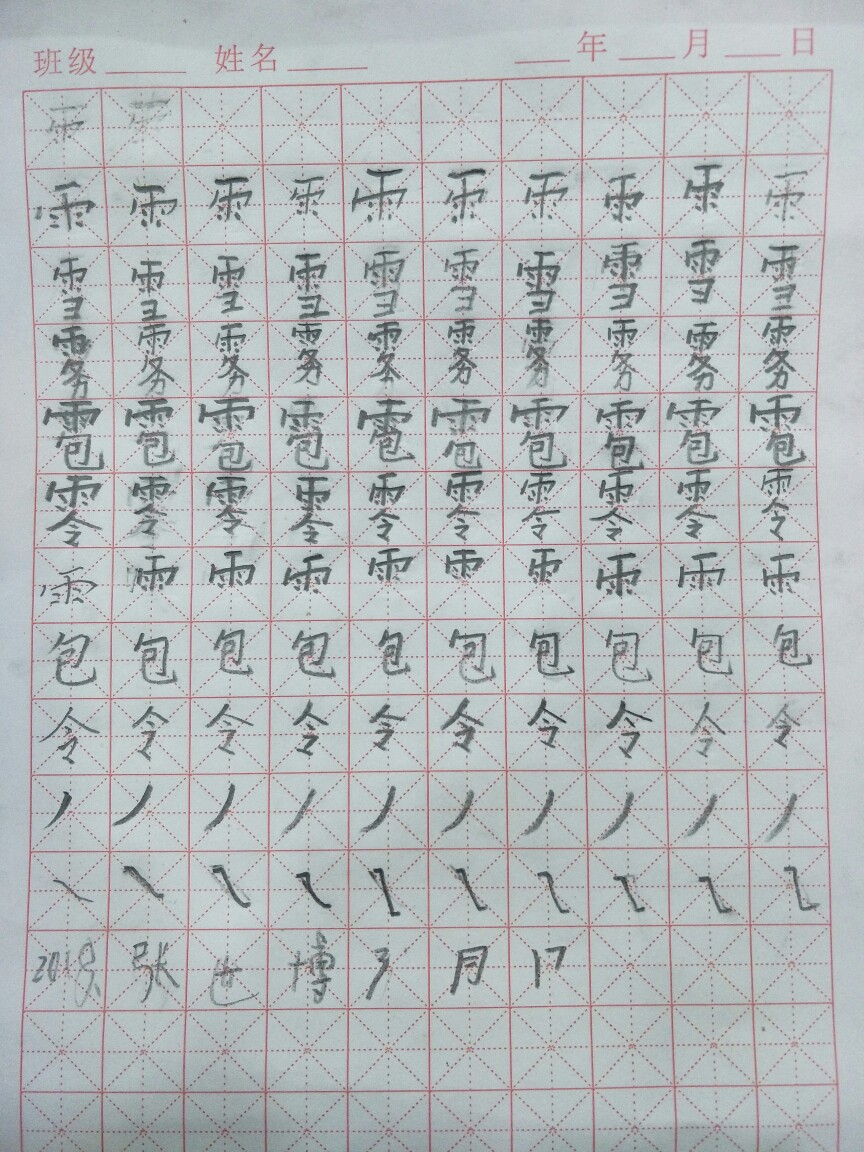 班级 姓名 年 月 日
雨 雨
雨 雨 雨 雨 雨 雨 雨 雨 雨 雨
雪 雪 雪 雪 雪 雪 雪 雪 雪 雪
雾 雾 雾 雾 雾 雾 雾 雾 雾 雾
雹 雹 雹 雹 雹 雹 雹 雹 雹 雹
零 零 零 零 零 零 零 零 零 零
雨 雨 雨 雨 雨 雨 雨 雨 雨 雨
包 包 包 包 包 包 包 包 包 包
令 令 令 令 令 令 令 令 令 令
丿 丿 丿 丿 丿 丿 丿 丿 丿 丿
张 博 3 月 17